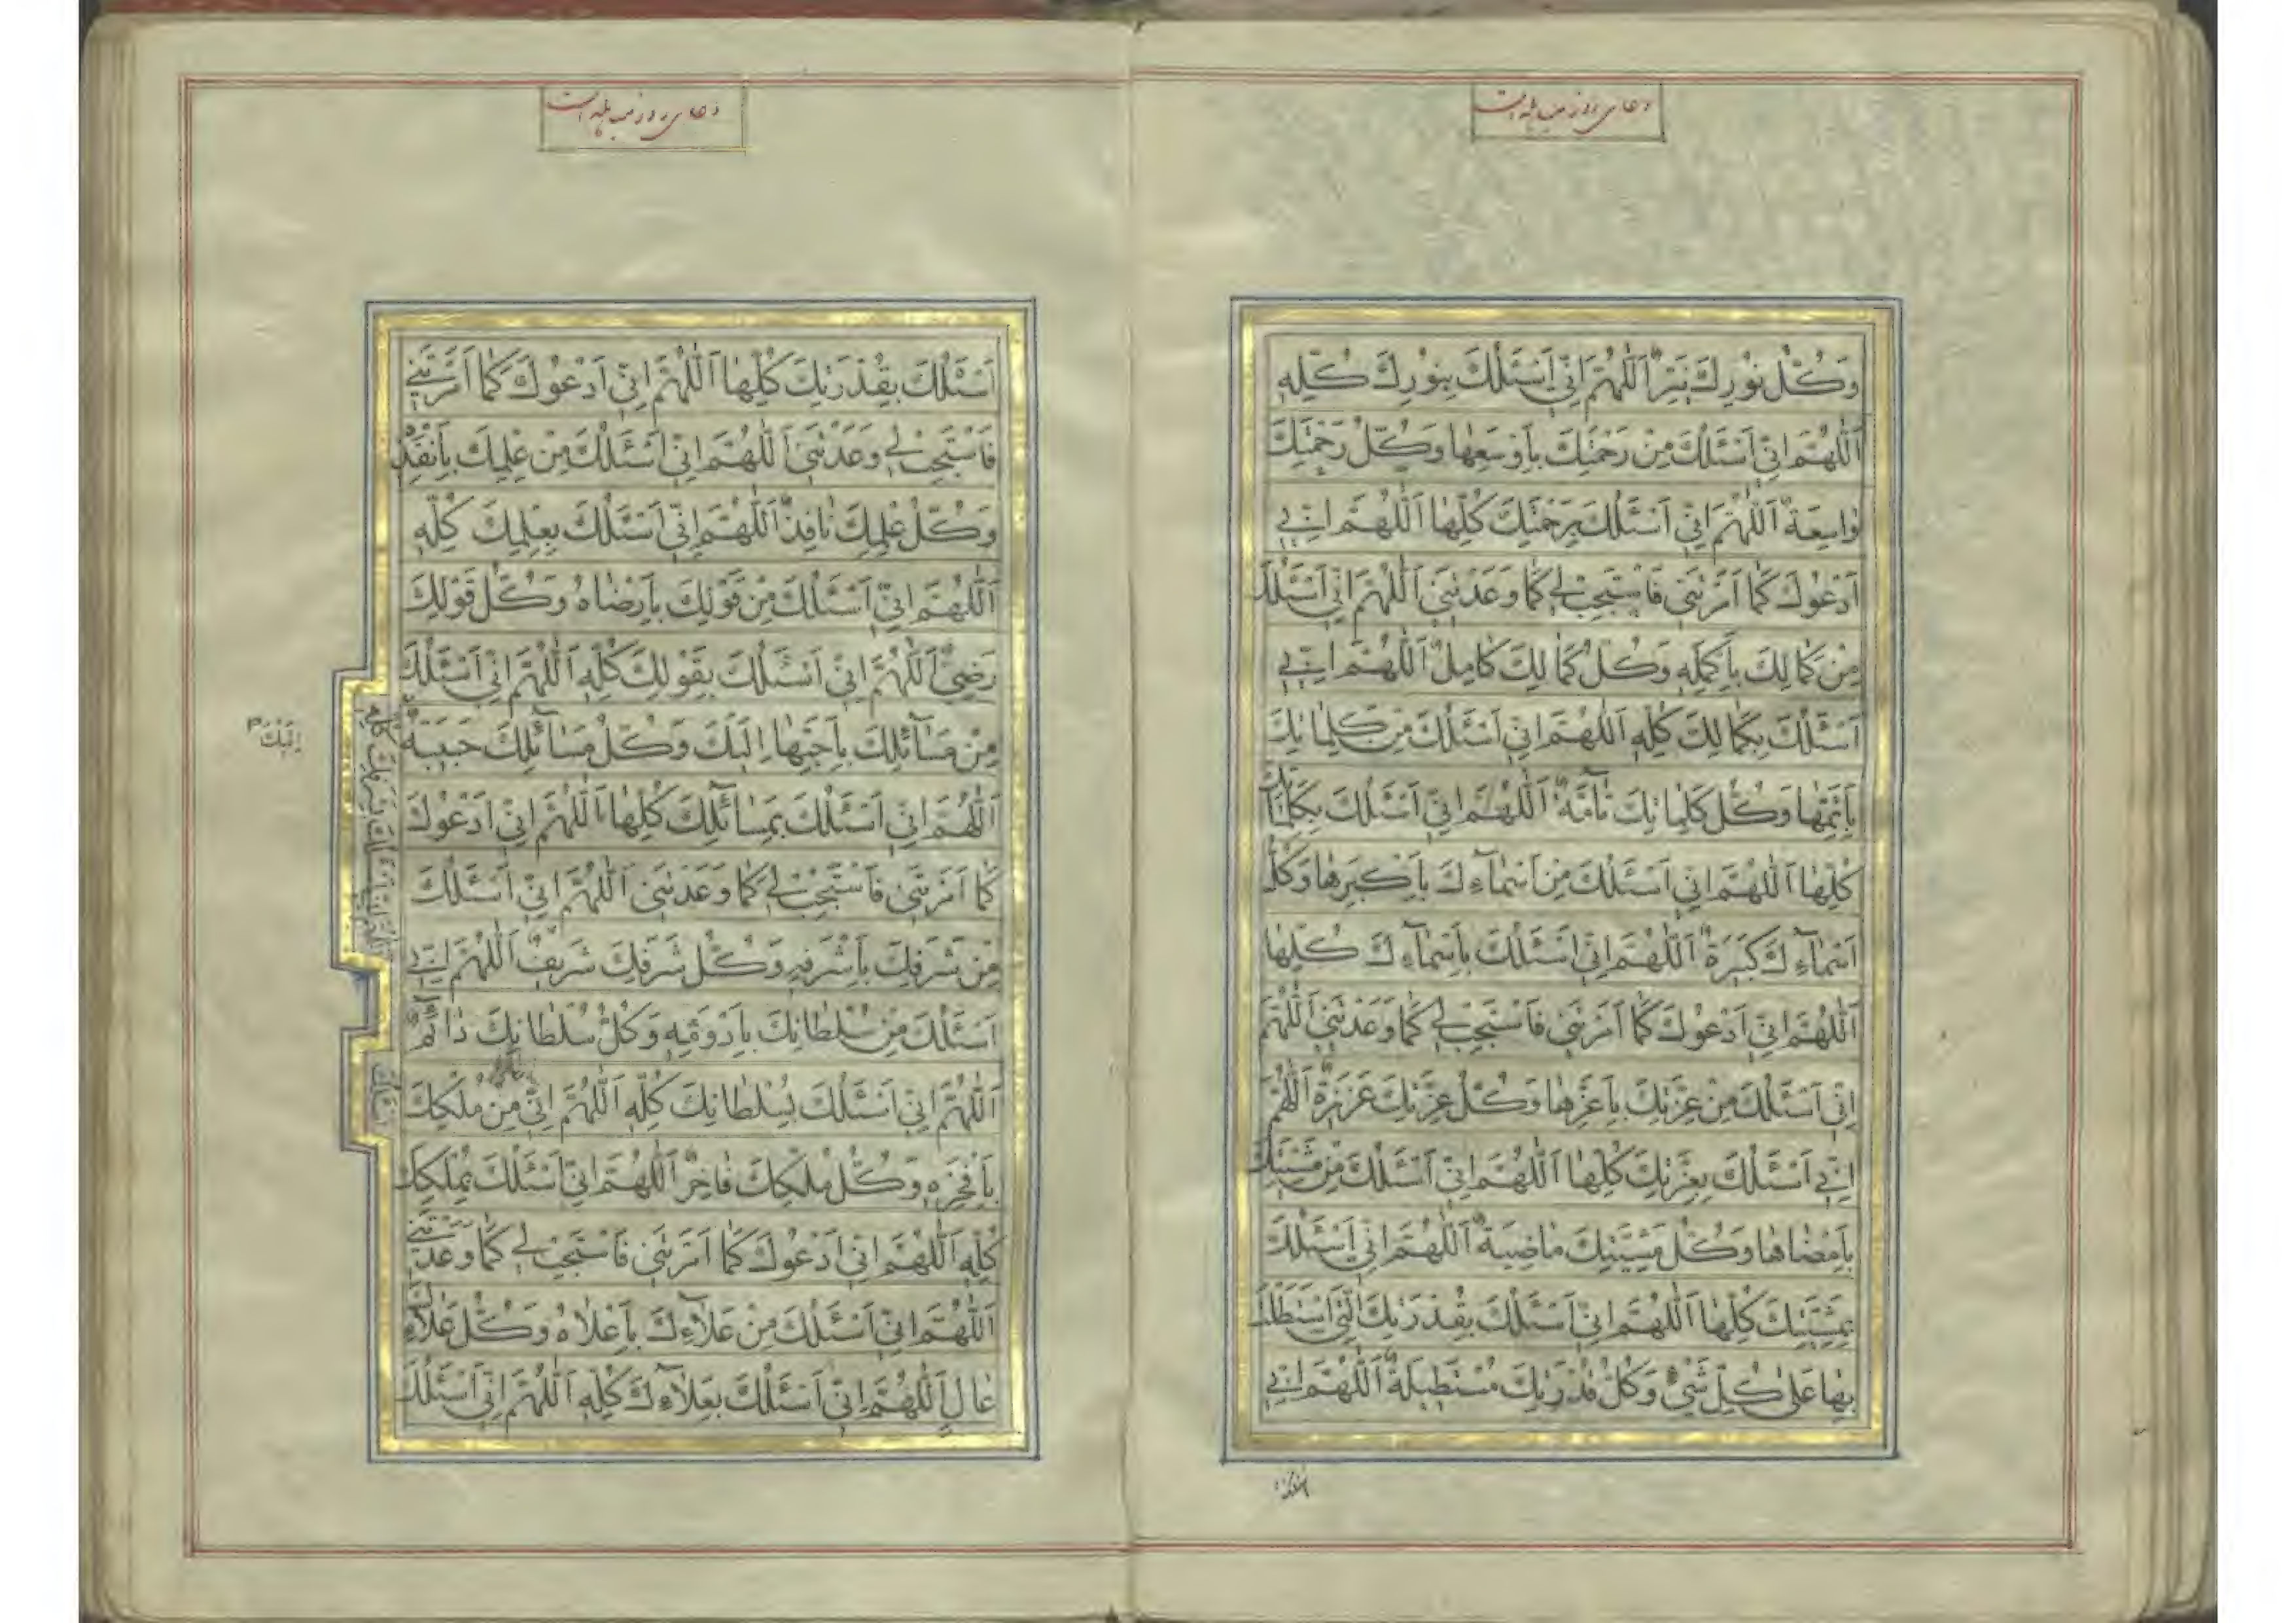 دعای روز مباهله است
وَكُلُّ نُورِكَ نَيِّرٌ اَللّٰهُمَّ اِنّی اَسْئَلُكَ بِنُورِكَ كُلِّهِ
اَللّٰهُمَّ اِنّی اَسْئَلُكَ مِنْ رَحْمَتِكَ بِاَوْسَعِهٰا وَكُلُّ رَحْمَتِكَ
وٰاسِعَةٌ اَللّٰهُمَّ اِنّی اَسْئَلُكَ بِرَحْمَتِكَ كُلِّهٰا اَللّٰهُمَّ اِنّی
اَدْعُوكَ كَمٰا اَمَرْتَنی فَاسْتَجِبْ لی كَمٰا وَعَدْتَنی اَللّٰهُمَّ اِنّی اَسْئَلُكَ
مِنْ كَمٰالِكَ بِاَكْمَلِهِ وَكُلُّ كَمٰالِكَ كٰامِلٌ اَللّٰهُمَّ اِنّی
اَسْئَلُكَ بِكَمٰالِكَ كُلِّهِ اَللّٰهُمَّ اِنّی اَسْئَلُكَ مِنْ كَلِمٰاتِكَ
بِاَتَمِّهٰا وَكُلُّ كَلِمٰاتِكَ تٰآمَّةٌ اَللّٰهُمَّ اِنّی اَسْئَلُكَ بِكَلِمٰاتِكَ
كُلِّهٰا اَللّٰهُمَّ اِنّی اَسْئَلُكَ مِنْ اَسْمٰآءِكَ بِاَكْبَرِهٰا وَكُلُّ
اَسْمٰآءِكَ كَبيرَةٌ اَللّٰهُمَّ اِنّی اَسْئَلُكَ بِاَسْمٰآءِكَ كُلِّهٰا
اَللّٰهُمَّ اِنّی اَدْعُوكَ كَمٰا اَمَرْتَنی فَاسْتَجِبْ لی كَمٰا وَعَدْتَنی اَللّٰهُمَّ
اِنّی اَسْئَلُكَ مِنْ عِزَّتِكَ بِاَعَزِّهٰا وَكُلُّ عِزَّتِكَ عَزيزَةٌ اَللّٰهُمَّ
اِنّی اَسْئَلُكَ بِعِزَّتِكَ كُلِّهٰا اَللّٰهُمَّ اِنّی اَسْئَلُكَ مِنْ مَشِيَّتِكَ
بِاَمْضٰاهٰا وَكُلُّ مَشِيَّتِكَ مٰاضِيَةٌ اَللّٰهُمَّ اِنّی اَسْئَلُكَ
بِمَشِيَّتِكَ كُلِّهٰا اَللّٰهُمَّ اِنّی اَسْئَلُكَ بِقُدْرَتِكَ الَّتی اسْتَطَلْتَ
بِهٰا عَلٰی كُلِّ شَیْءٍ وَكُلُّ قُدْرَتِكَ مُسْتَطيلَةٌ اَللّٰهُمَّ اِنّی
دعای روز مباهله است
اَسْئَلُكَ بِقُدْرَتِكَ كُلِّهٰا اَللّٰهُمَّ اِنّی اَدْعُوكَ كَمٰا اَمَرْتَنی
فَاسْتَجِبْ لی وَعَدْتَنی اَللّٰهُمَّ اِنّی اَسْئَلُكَ مِنْ عِلْمِكَ بِاَنْفَذِهِ
وَكُلُّ عِلْمِكَ نٰافِذٌ اَللّٰهُمَّ اِنّی اَسْئَلُكَ بِعِلْمِكَ كُلِّهِ
اَللّٰهُمَّ اِنّی اَسْئَلُكَ مِنْ قَوْلِكَ بِاَرْضٰاهُ وَكُلُّ قَوْلِكَ
رَضِیٌّ اَللّٰهُمَّ اِنّی اَسْئَلُكَ بِقَوْلِكَ كُلِّهِ اَللّٰهُمَّ اِنّی اَسْئَلُكَ
مِنْ مَسٰآئِلِكَ بِاَحَبِّهٰا اِلَيْكَ وَكُلُّ مَسٰآئِلِكَ حَبيبَةٌ
اِلَيْكَ
اَللّٰهُمَّ اِنّی اَسْئَلُكَ بِمَسٰآئِلِكَ كُلِّهٰا اَللّٰهُمَّ اِنّی اَدْعُوكَ
كَمٰا اَمَرْتَنی فَاسْتَجِبْ لی كَمٰا وَعَدْتَنی اَللّٰهُمَّ اِنّی اَسْئَلُكَ
مِنْ شَرَفِكَ بِاَشْرَفِهِ وَكُلُّ شَرَفِكَ شَريفٌ اَللّٰهُمَّ اِنّی
اَسْئَلُكَ بِشَرَفِكَ كُلِّهِ
اَسْئَلُكَ مِنْ سُلْطٰانِكَ بِاَدْوَمِهِ وَكُلُّ سُلْطٰانِكَ دٰائِمٌ
اَللّٰهُمَّ اِنّی اَسْئَلُكَ بِسُلْطٰانِكَ كُلِّهِ اَللّٰهُمَّ اِنّی مِنْ مُلْكِكَ
اَسْئَلُكَ
بِاَفْخَرِهِ وَكُلُّ مُلْكِكَ فٰاخِرٌ اَللّٰهُمَّ اِنّی اَسْئَلُكَ بِمُلْكِكَ
كُلِّهِ اَللّٰهُمَّ اِنّی اَدْعُوكَ كَمٰا اَمَرْتَنی فَاسْتَجِبْ لی كَمٰا وَعَدْتَنی
اَللّٰهُمَّ اِنّی اَسْئَلُكَ مِنْ عَلٰآءِكَ بِاَعْلٰاهُ وَكُلُّ عَلٰآءِكَ
عٰالٍ اَللّٰهُمَّ اِنّی اَسْئَلُكَ بِعَلٰآءِكَ كُلِّهِ اَللّٰهُمَّ اِنّی اَسْئَلُكَ